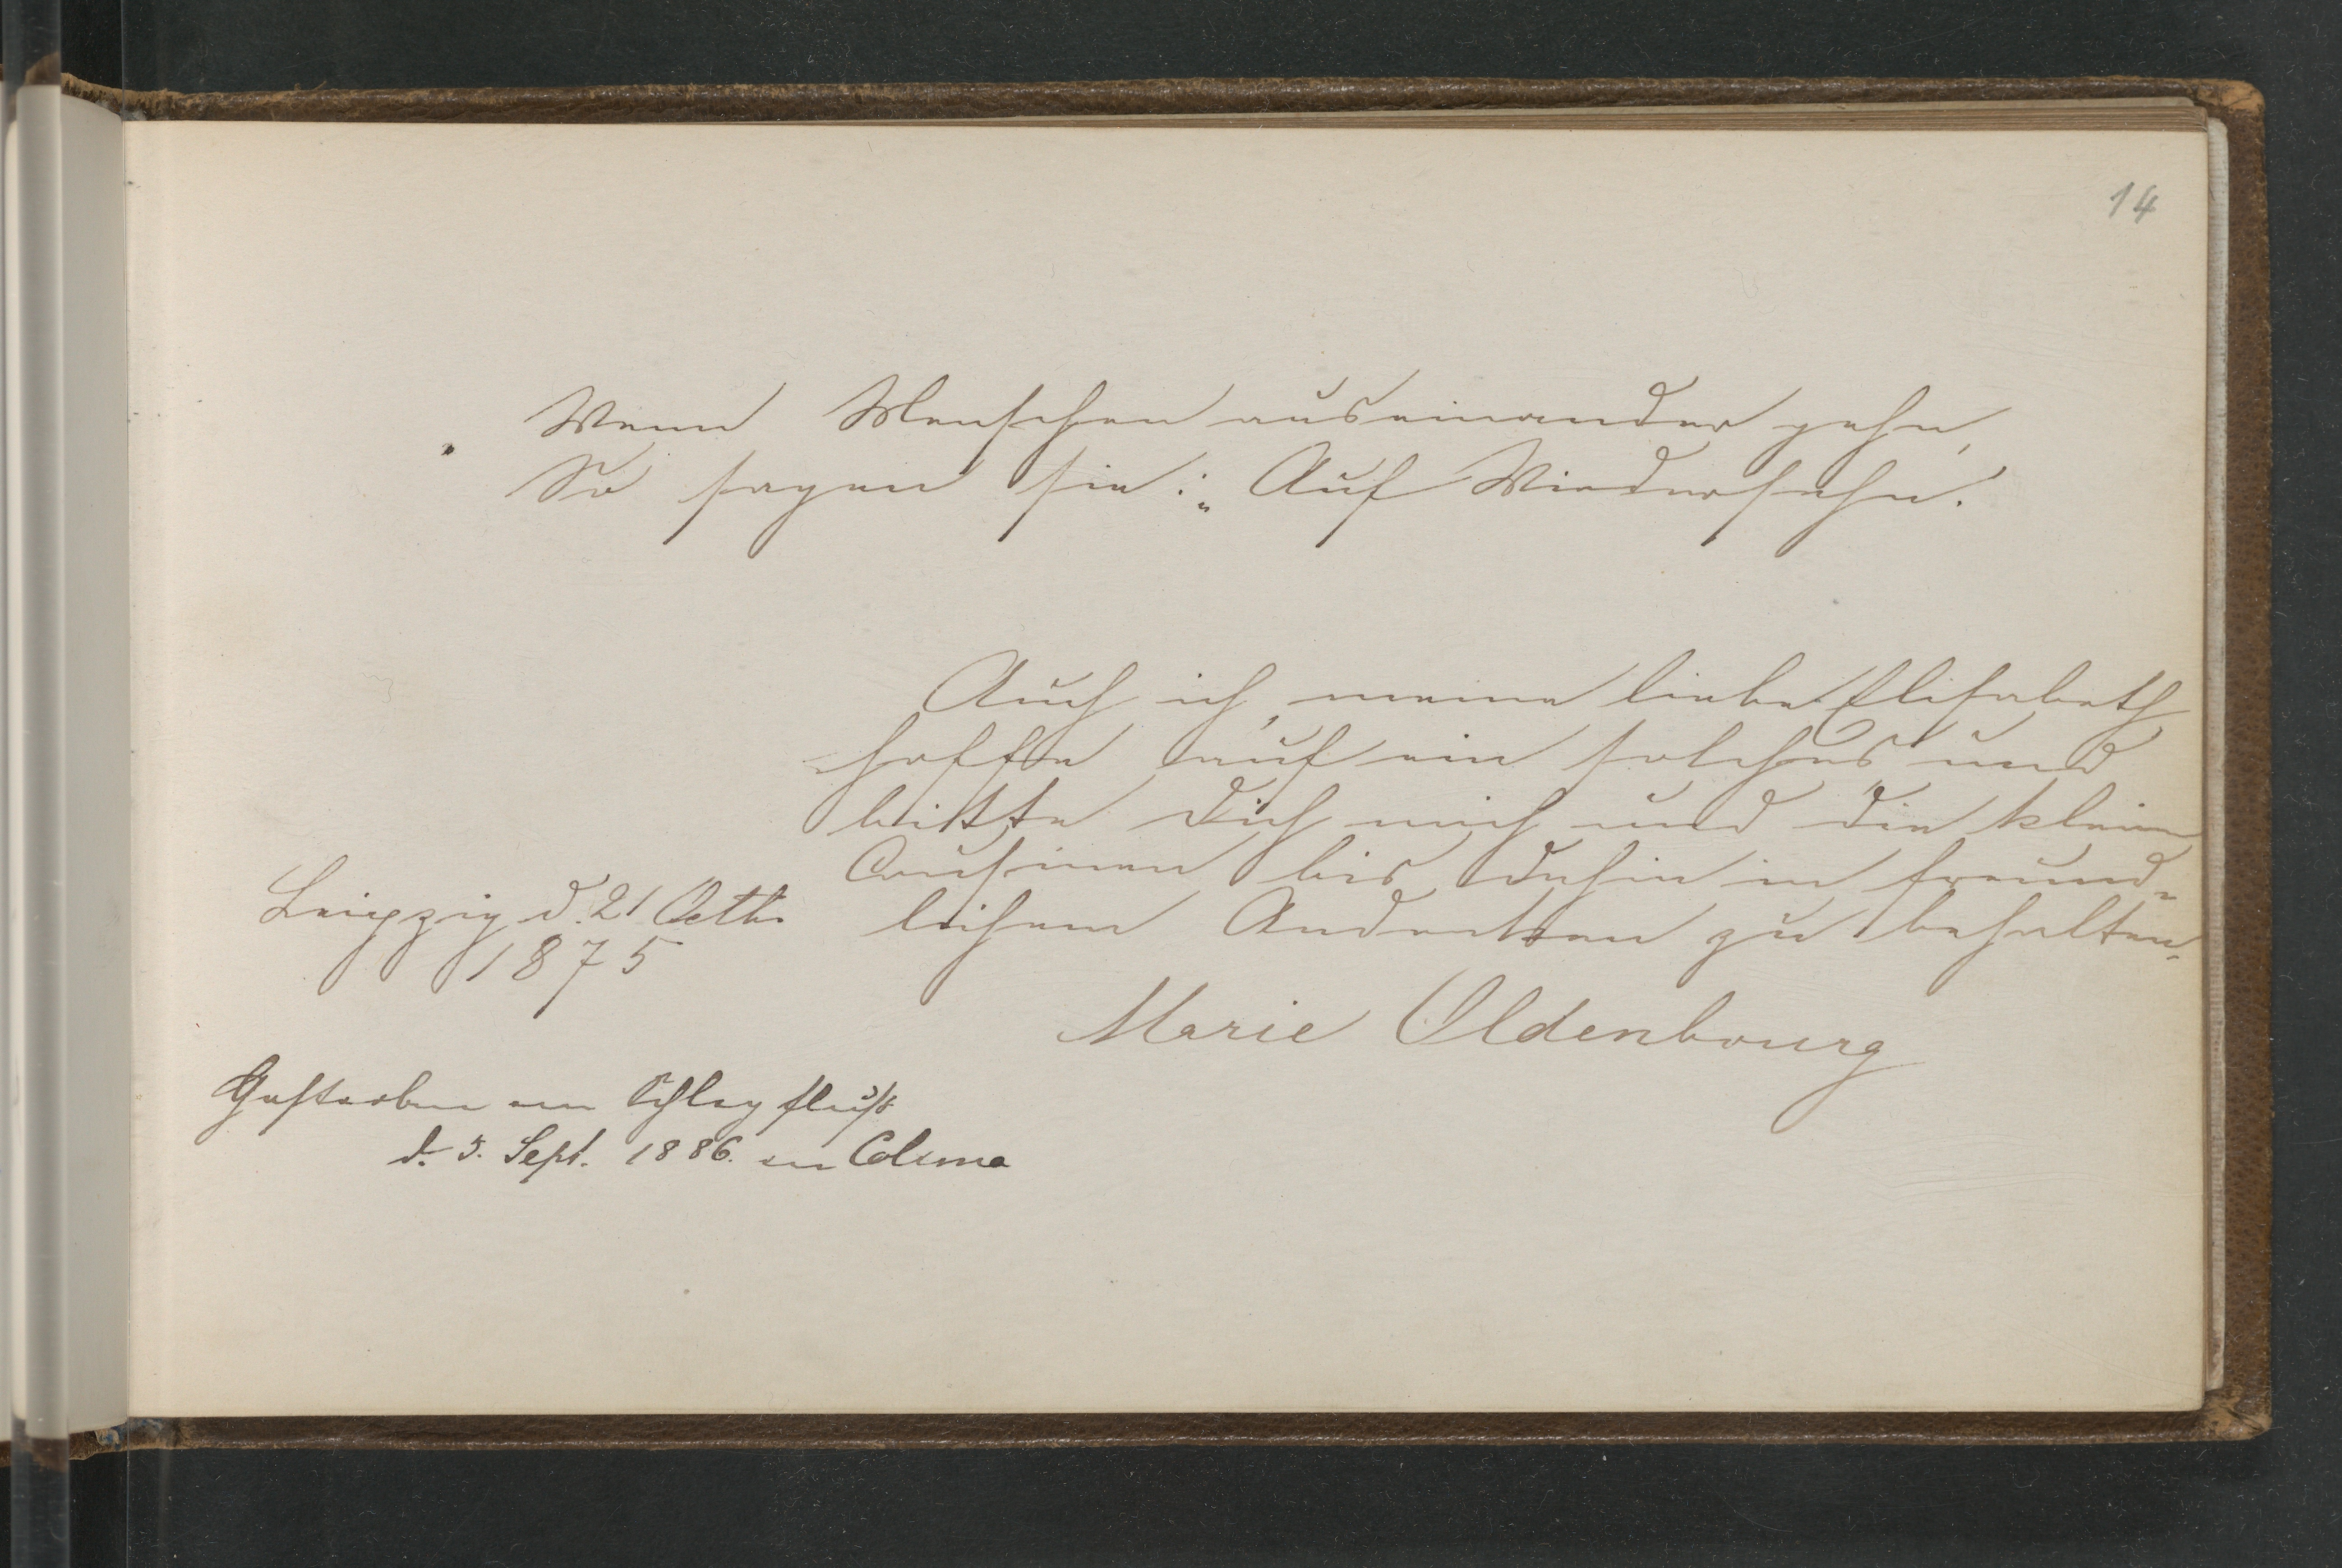 14
„Wenn Menschen auseinander gehn,
So sagen sie: „Auf Wiedersehn.
Auch ich, meine liebe Elisabeth
hoffe auf ein solches und
bitte Dich mich und die kleinen
Cousinen bis dahin in freund-
lichem Andenken zu behalten.
Leipzig d. 21 Octbr
1875
Marie Oldenbourg
Gestorben am Schlagfluß
d. 5. Sept. 1886. in Colima